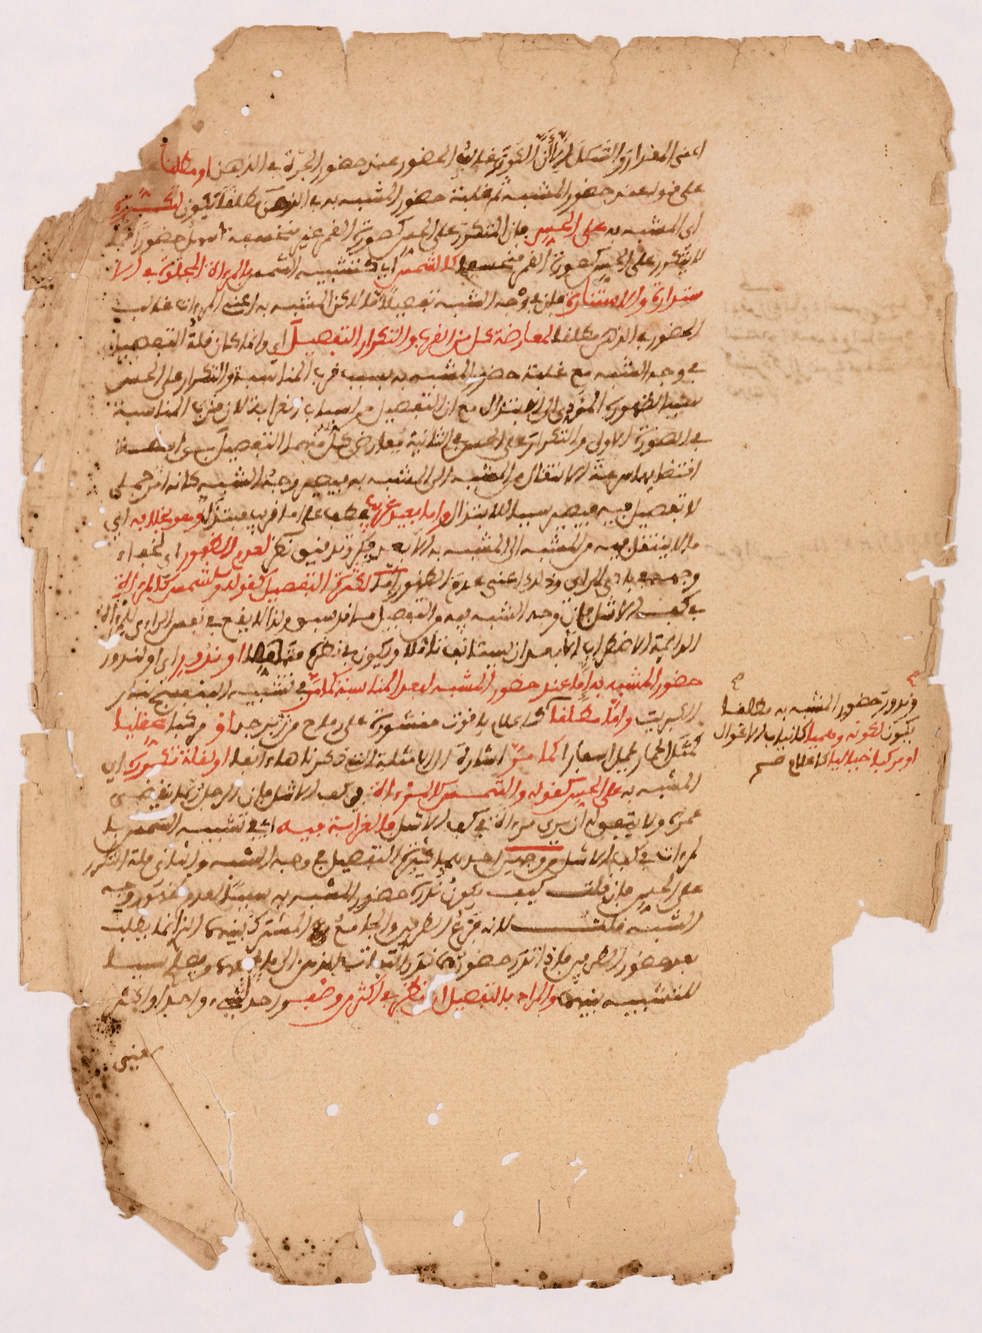 اعنى المقدار والشكل الا أن الكوز غالب الحضور عند حضور الجرة في الذهن او مطلقا
على قوله عند حضور المشبه ثم غلبة حضور المشبه به في الذهن مطلقا تكون لتكرره
اى المشبه به على الحس فان المتكرر على الحس كصورة القمر غير منخسف اسهل حضورا مما
لا يتكرر على الحس كصورة القمر منخسفا كالشمس اى كتشبيه الشمس بالمرءاة المجلوة في الا
ستدارة والاستنارة فان في وجه الشبه تفصيلا ما لاكن المشبه به اعنى المرءات غالب
الحضور في الذهن مطلقا لمعارضة كل من القرب والتكرار التفصيل اى وانما كان قلة التفصيل
في وجه الشبه مع غلبة حضور المشبه به بسبب قرب المناسبة والتكرار على الحس
سببا لظهوره المؤدي الى الابتذال مع ان التفصيل من اسباب الغرابة لان قرب المناسبة
في الصورة الاولى والتكرار على الحس في الثانية يعارض كل منهما التفصيل بواسطة
اقتضائهما سرعة الانتقال من المشبه الى المشبه به فيصير وجه الشبه كانه امر جملي
لا تفصيل فيه فيصير سببا للابتذال واما بعيد غريب عطف على اما قريب مبتذل وهو بخلافه اى
ما لا ينتقل فيه من المشبه الى المشبه به الا بعد فكر وتدقيق نظر لعدم الظهور اى لخفاء
وجهه في بادي الراى وذلك اعنى عدم الظهور اما لكثرة التفصيل كقوله والشمس كالمرءاة
في كف الاشل فان وجه الشبه فيه والتفصيل ما قد سبق ولذا لا يقع في نفس الراءى للمرءاة
الدايمة الاضطراب الا بعد ان يستانف تاملا ويكون في نظره متمهلا او ندور اى او لندور
حضور المشبه به اما عند حضور المشبه لبعد المناسبة كما مر في تشبيه البنفسج بنار
الكبريت واما مطلقا كاعلام ياقوت منشورة على رماح من زبرجد او مركبا عقليا
كمثل الحمار يحمل اسفارا كما مر اشارة الى الامثلة التي ذكرناها ءانفا او لقلة تكرره اى
المشبه به على الحس كقوله والشمس كالمرءاة في كف الاشل فان الرجل ربما ينقضى
عمره ولا يتفق له ان يرى مرءاة في كف الاشل فالغرابة فيه اى في تشبيه الشمس با
لمرءات في كف الاشل من وجهين احدهما كثرة التفصيل في وجه الشبه والثانى قلة التكرر
على الحس فان قلت كيف يكون ندرة حضور المشبه به سببا لعدم ظهور وجه
الشبه قلت لانه فرع الطرفين والجامع المشترك بينهما الذى انما يطلب
بعد حضور الطرفين فاذا ندر حضورهما ندر التفات الذهن الى ما يجمعهما ويصلح سببا
للتشبيه بينهما والمراد بالتفصيل ان ينظر في اكثر من وصف واحد لشىء واحد او اكثر
وندور حضور المشبه به مطلقا
يكون لكونه وهميا كانياب الاغوال
او مركبا خياليا كاعلام صح
يعنى